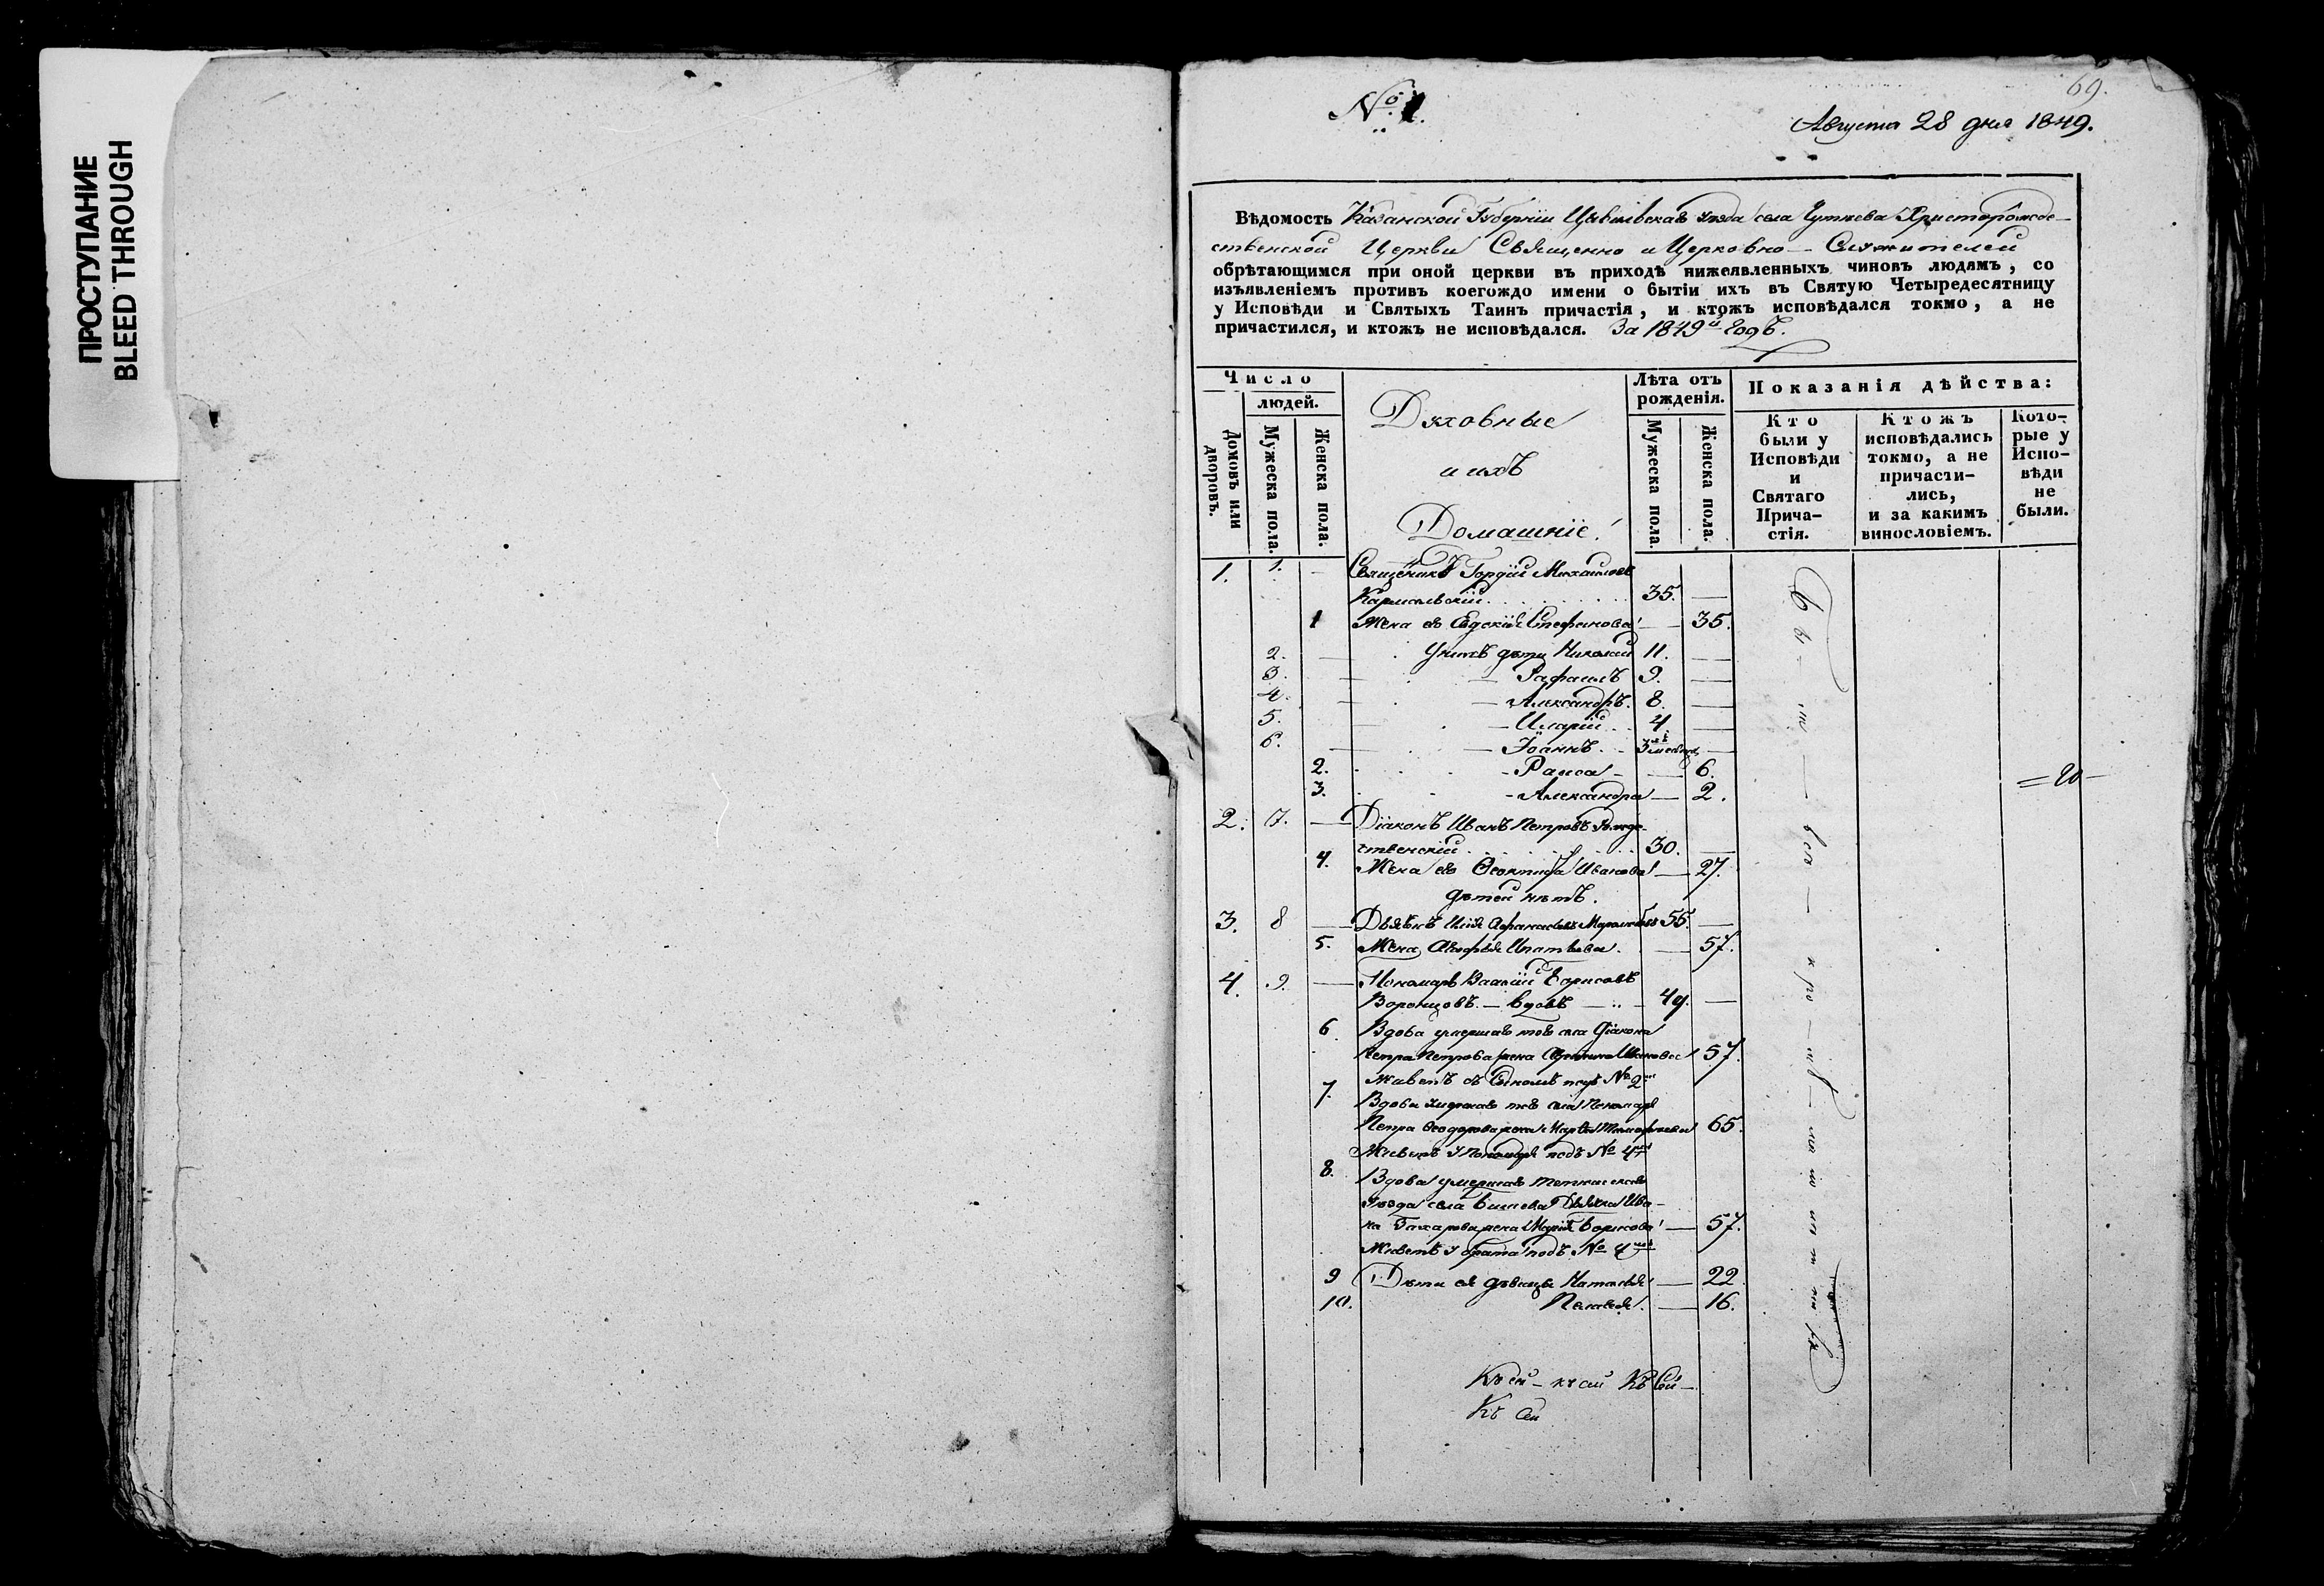 ПРОСТУПАНИЕ
BLEED THROUGH
69.
№ 1.
Августа 28 дня 1849.
Вѣдомость Казанской Губерніи Цивильскаго уѣзда села Чутѣева Христорожде-
ственской Церкви Священно и Церковно-Служителей
обрѣтающимся при оной церкви въ приходѣ нижеявленныхъ чиновъ людямъ, со
изъявленіемъ противъ коегождо имени о бытіи ихъ въ Святую Четыредесятницу
у Исповѣди и Святыхъ Таинъ причастія, и ктожъ исповѣдался токмо, а не
причастился, и ктожъ не исповѣдался. За 1849й Годъ.
Число
людей.
Домовъ или дворовъ.
Мужеска пола.
Женска пола.
Духовные
и ихъ
Домашніе.
Лѣта отъ
рожденія.
Мужеска пола.
Женска пола.
Показанія дѣйства:
Кто
были у
Исповѣди
и
Святаго
Прича-
стія.
Ктожъ
исповѣдались
токмо, а не
причасти-
лись,
и за какимъ
винословіемъ.
Кото-
рые у
Испо-
вѣди
не
были.
1. 1. — Священникъ Гордій Михайловъ
Кармальскій 35. —
1 Жена его Евдокія Стефанова — 35.
2. — У нихъ дѣти Николай 11. —
3. — Рафаилъ 9. —
4. — Александръ. 8. —
5. — Иларій 4 —
6. — Іоаннъ 3 —
2. — Раиса — 6.
3. — Александра — 2.
= 20 —
2. 7. — Діаконъ Иванъ Петровъ Рожде-
ственскій 30. —
4. Жена его Ѳеоктиста Иванова — 27.
дѣтей нѣтъ.
3. 8 — Дьячекъ Илія Афанасьевъ 55. —
5. Жена Игнатьева — 57.
4. 9. — Пономарь Борисовъ
Воронцовъ — вдовъ — 49. —
6 Вдова умершаго того села Діакона
Петра Петрова жена Иванова 57.
Живетъ съ Сыномъ подъ № 2м
7. Вдова умершаго того села Пономаря
Петра Ѳеодорова жена Тимофеева 65.
Живетъ у Пономаря подъ № 4м
8. Вдова умершаго
уѣзда села Дьячка Ива-
на Захарова жена Марія Борисова — 57.
Живетъ у брата подъ № 4мъ
9 Дѣти ея дѣвицы Наталья — 22
10. Пелагея — 16.
Къ сей — къ сей Къ Сей —
Къ Сей